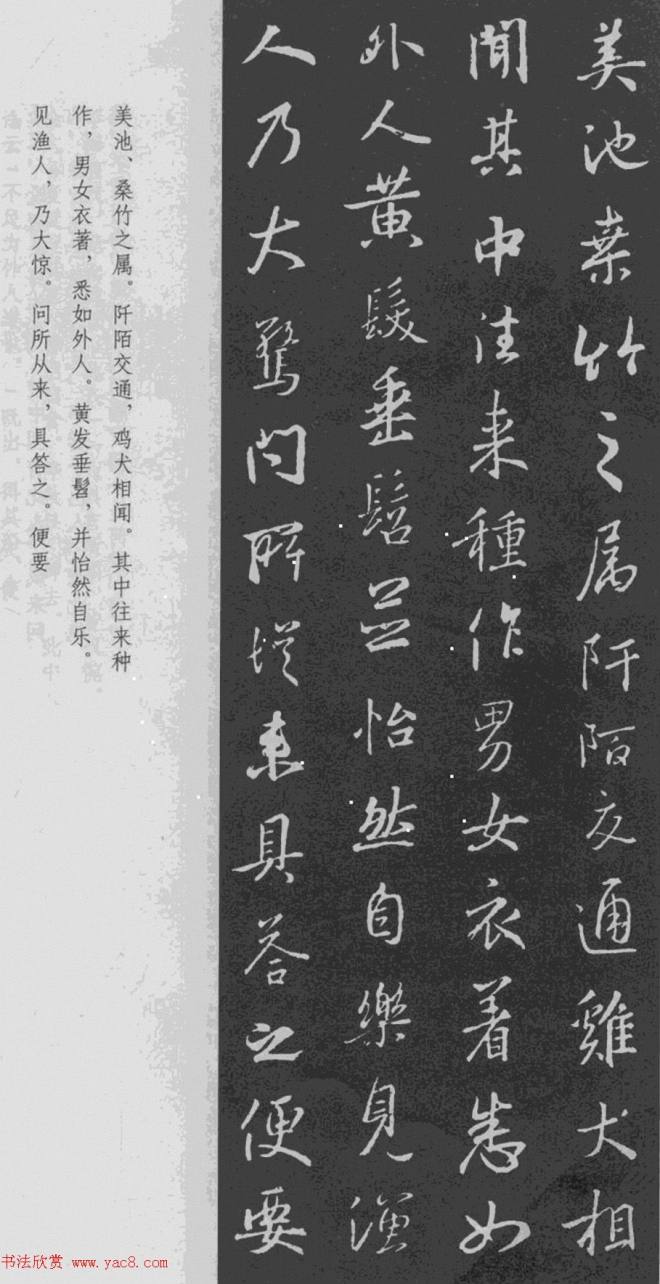 美池桒竹之属阡陌交通雞犬相
聞其中往来種作男女衣着悉如
外人黄髮垂髫並怡然自樂見漁
人乃大驚問所從来具答之便要
美池、桑竹之属。阡陌交通，鸡犬相闻。其中往来种
作，男女衣著，悉如外人。黄发垂髫，并怡然自乐。
见渔人，乃大惊。问所从来，具答之。便要
书法欣赏 www.yac8.com